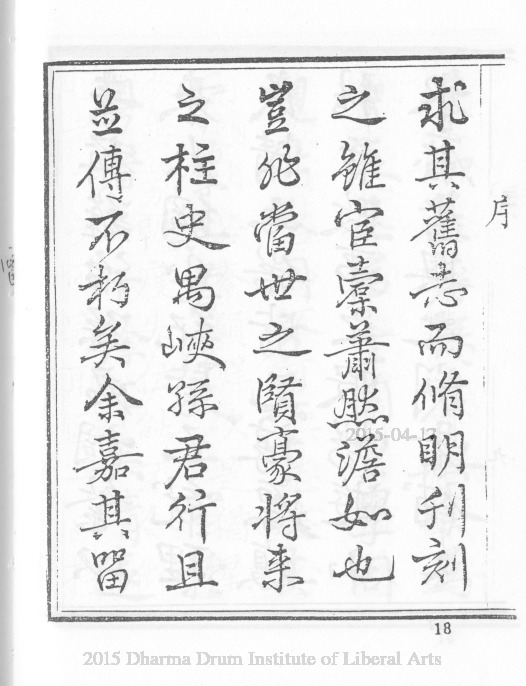 序
求其舊志而脩明刊刻
之雖宦橐蕭然澹如也
豈非當世之賢豪將来
之柱史禺峽孫君行且
並傳不朽矣余嘉其留
18
2015-04-17
2015 Dharma Drum Institute of Liberal Arts